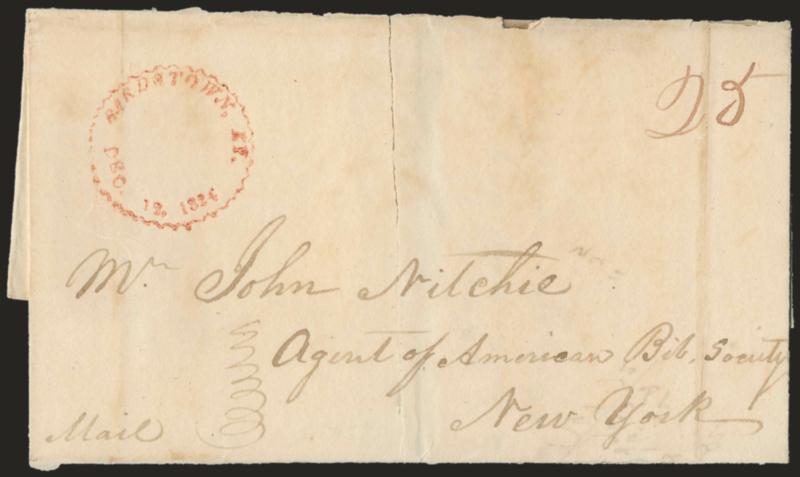 BARDSTOWN, KY.
DEC. 12, 1824
25
Mr John Nitchie
Agent of American Bib. Society
New York
Mail